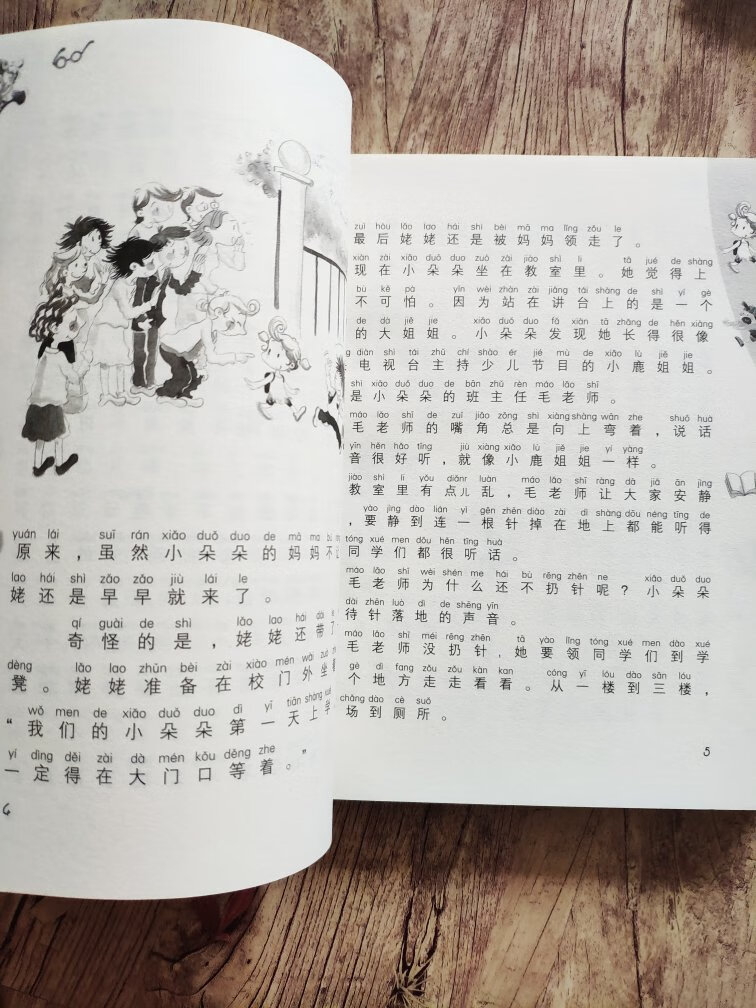 yuán lái suī rán xiǎo duǒ duo de mā ma bù
原来，虽然小朵朵的妈妈不
lao hái shì zǎo zǎo jiù lái le
姥还是早早就来了。
qí guài de shì lǎo lao hái dài
奇怪的是，姥姥还带了
dèng lǎo lao zhǔn bèi zài xiào mén wài zuò
凳。姥姥准备在校门外坐着
wǒ men de xiǎo duǒ duo dì yī tiān shàng xué
“我们的小朵朵第一天上学
yí dìng děi zài dà mén kǒu děng zhe
一定得在大门口等着。”
4
zuì hòu lǎo lao hái shi bèi mā ma lǐng zǒu le
最后姥姥还是被妈妈领走了。
xiàn zài xiǎo duǒ duo zuò zài jiào shì li tā jué de shàng
现在小朵朵坐在教室里。她觉得上
bù kě pà yīn wèi zhàn zài jiǎng tái shang de shì yí gè
不可怕。因为站在讲台上的是一个
de dà jiě jie xiǎo duǒ duo fā xiàn tā zhǎng de hěn xiàng
的大姐姐。小朵朵发现她长得很像
diàn shì tái zhǔ chí shào ér jié mù de xiǎo lù jiě jie
电视台主持少儿节目的小鹿姐姐。
shì xiǎo duǒ duo de bān zhǔ rèn máo lǎo shī
是小朵朵的班主任毛老师。
máo lǎo shī de zuǐ jiǎo zǒng shì xiàng shàng wān zhe shuō huà
毛老师的嘴角总是向上弯着，说话
yīn hěn hǎo tīng jiù xiàng xiǎo lù jiě jie yí yàng
音很好听，就像小鹿姐姐一样。
jiào shì li yǒu diǎnr luàn máo lǎo shī ràng dà jiā ān jìng
教室里有点儿乱，毛老师让大家安静
yào jìng dào lián yì gēn zhēn diào zài dì shang dōu néng tīng de
，要静到连一根针掉在地上都能听得
tóng xué men dōu hěn tīng huà
同学们都很听话。
máo lǎo shī wèi shén me hái bù rēng zhēn ne xiǎo duǒ duo
毛老师为什么还不扔针呢？小朵朵
dài zhēn luò dì de shēng yīn
待针落地的声音。
máo lǎo shī méi rēng zhēn tā yào lǐng tóng xué men dào xué
毛老师没扔针，她要领同学们到学
gè dì fang zǒu zǒu kàn kan cóng yī lóu dào sān lóu
个地方走走看看。从一楼到三楼，
chǎng dào cè suǒ
场到厕所。
5